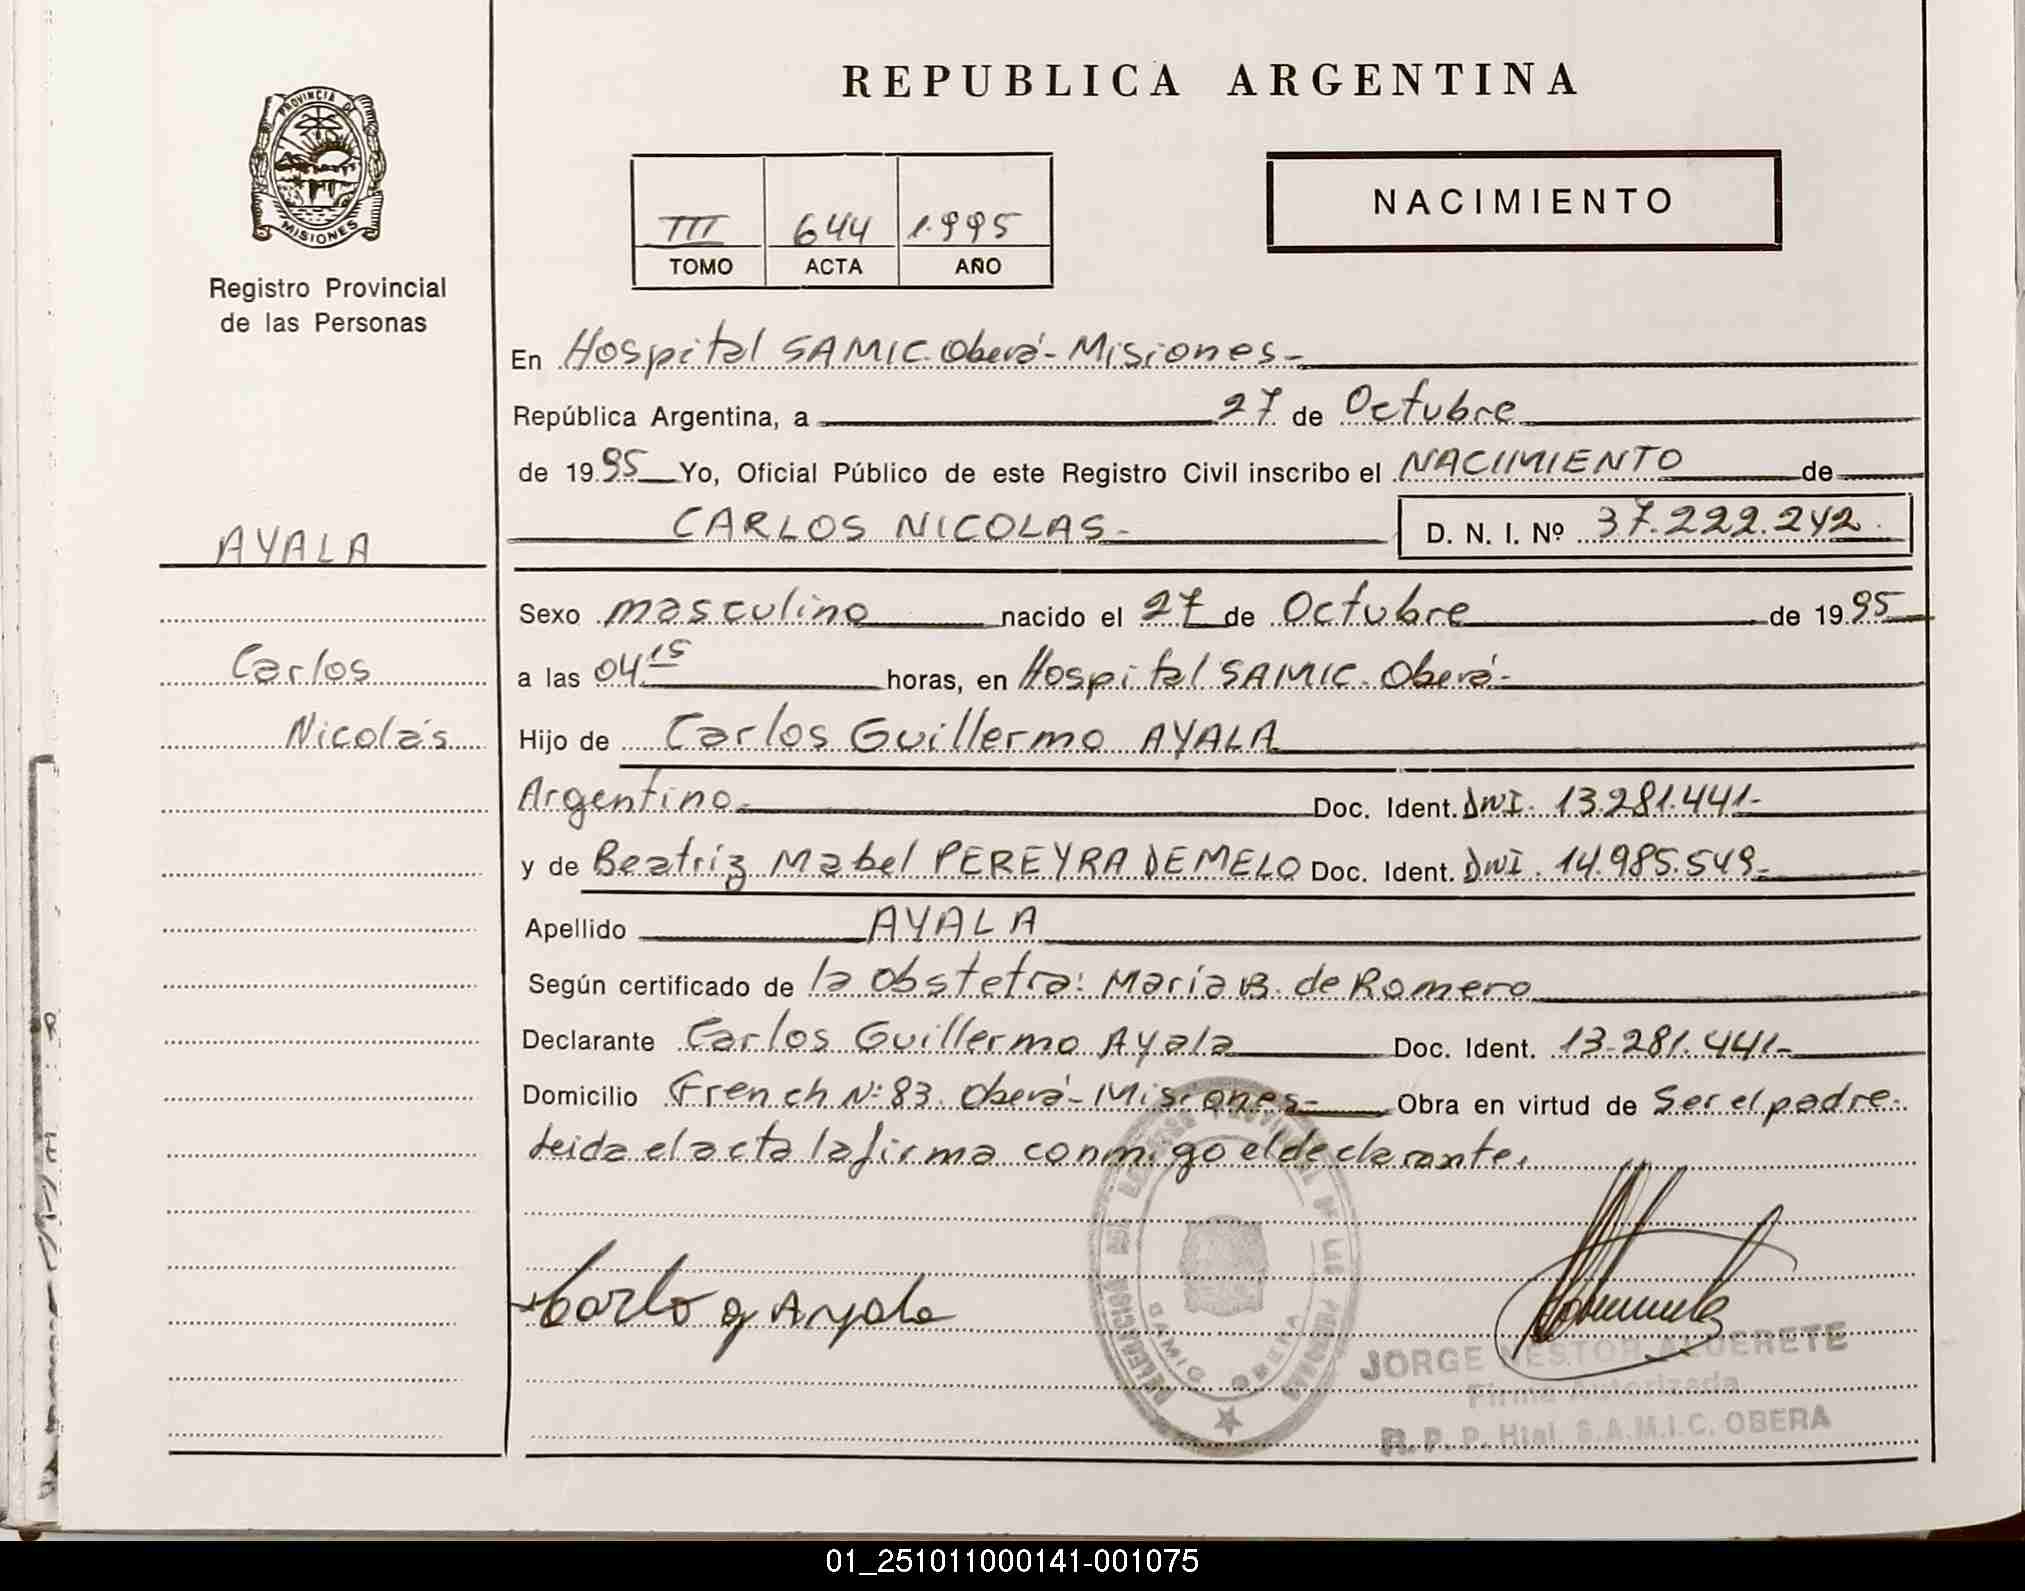 PROVINCIA DE
MISIONES
Registro Provincial
de las Personas
AYALA
Carlos
Nicolás
REPUBLICA ARGENTINA
III 644 1.995
TOMO ACTA AÑO
NACIMIENTO
En Hospital SAMIC. Oberá - Misiones -
República Argentina, a 27 de Octubre
de 1995 Yo, Oficial Público de este Registro Civil inscribo el NACIMIENTO de
CARLOS NICOLAS - D. N. I. Nº 37.222.242.
Sexo masculino nacido el 27 de Octubre de 1995
a las 04 15 horas, en Hospital SAMIC. Oberá -
Hijo de Carlos Guillermo AYALA
Argentino Doc. Ident. DNI. 13.281.441-
y de Beatriz Mabel PEREYRA DEMELO Doc. Ident. DNI. 14.985.549-
Apellido AYALA
Según certificado de la Obstetra: María B. de Romero
Declarante Carlos Guillermo Ayala Doc. Ident. 13.281.441-
Domicilio French Nº 83. Oberá - Misiones - Obra en virtud de Ser el padre.
Leida el acta la firma conmigo el declarante.
Carlo g Ayala
DE LAS PERSONAS
SAMIC OBERA
JORGE NESTOR ALDERETE
Firma Autorizada
R. P. P. Htal. S.A.M.I.C. OBERA
01_251011000141-001075